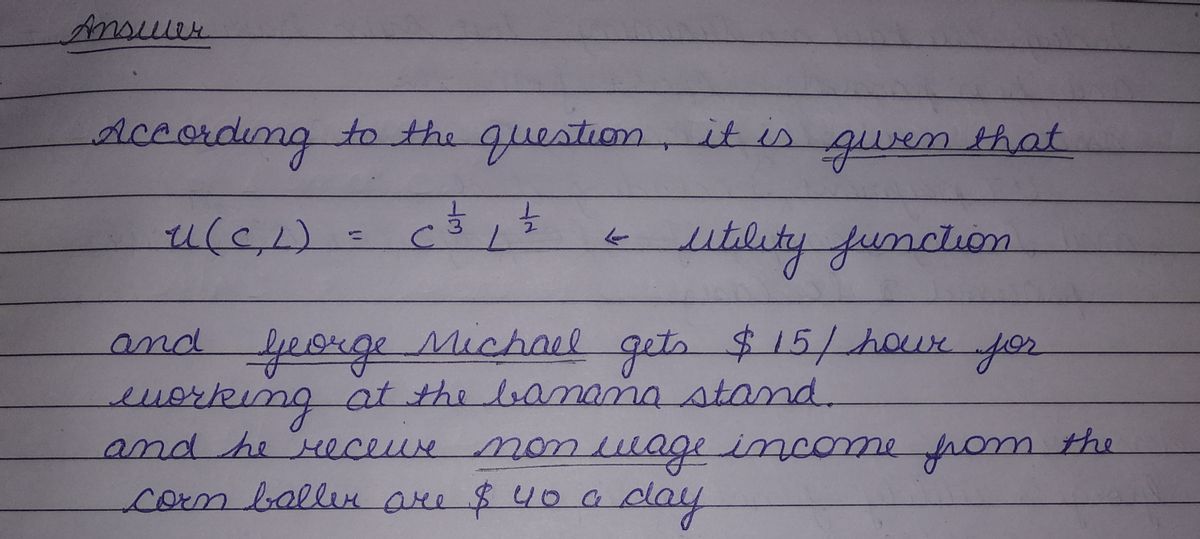 Answer
According to the question, it is given that
u(c,L) = c^{1/3} L^{1/2} ← utility function
and George Michael gets $15/hour for
working at the banana stand.
and he receive non wage income from the
corn baller are $40 a day